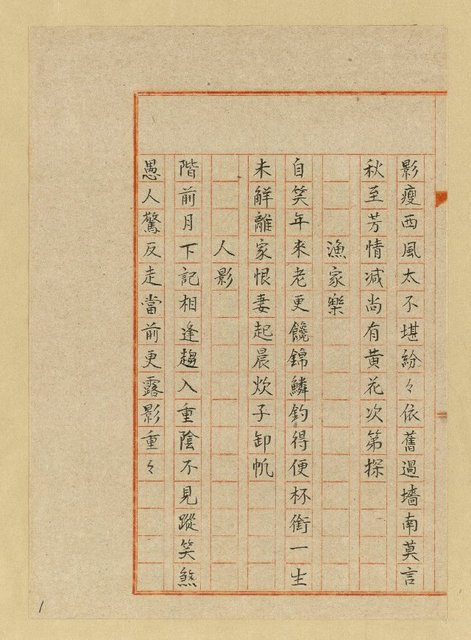 影瘦西風太不堪紛々依舊過墻南莫言
秋至芳情减尚有黄花次第探
漁家樂
自笑年來老更饞錦鱗釣得便杯銜一生
未解離家恨妻起晨炊子卸帆
人影
階前月下記相逢趨入重陰不見蹤笑煞
愚人驚反走當前更露影重々
1